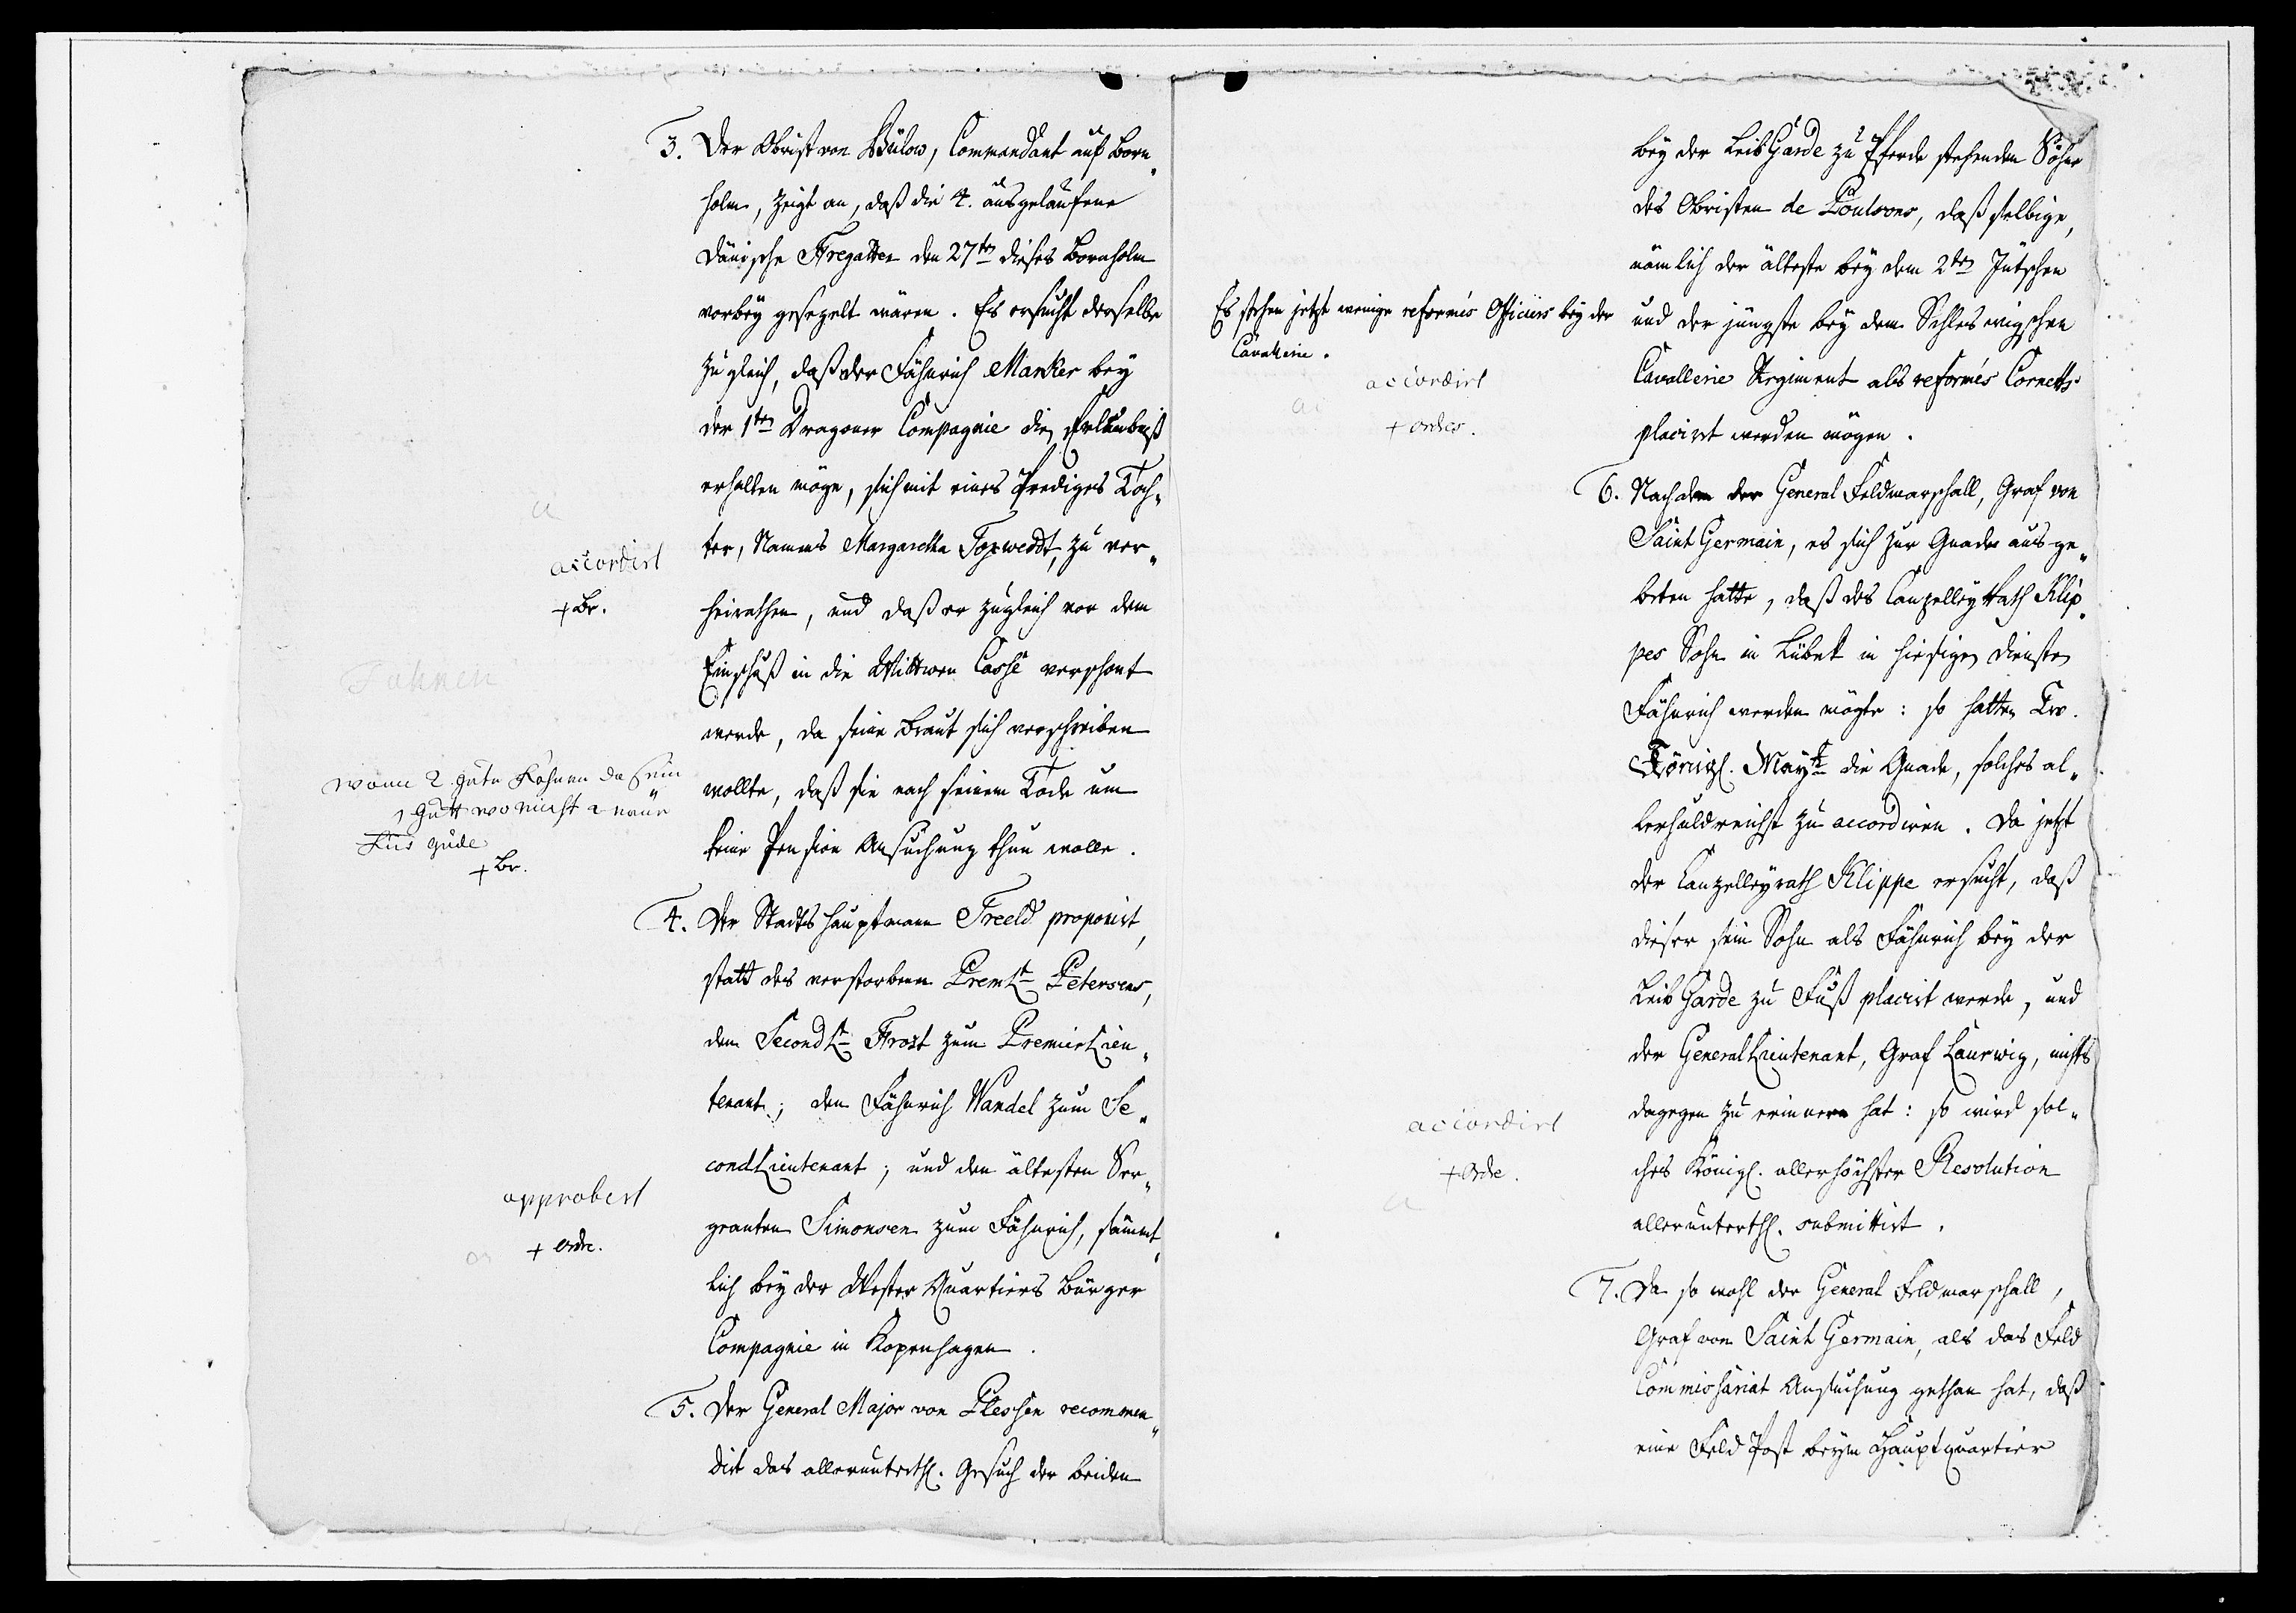 3. Der Obrist von Bülow, Commandant auf Born„
holm, zeigt an, daß die 4. ausgelaufene
dänische Fregatten den 27ten dieses Bornholm
vorbey gesegelt wären. Es ersucht derselbe
zugleich, daß der Fähnrich Manker bey
der 1ten Dragoner Compagnie die Erlaubniß
erhalten möge, sich mit eines Predigers Toch„
ter, Namens Margaretha Topweddt, zu ver„
heirathen, und daß er zugleich vor dem
Einschuß in die Wittwen Casse verschont
werde, da seine Braut sich verschreiben
wollte, daß sie nach seinem Tode um
keine Pension Ansuchung thun wolle.
accordirt
+ Br.
wann 2. gute Fahnen da sein
gutt wo nicht 2 neue
+ Br.
4. Der Stadtshauptmann Treeld proponirt,
statt des verstorbenen PremLt Petersens,
den SecondLt Frost zum PremierLieu„
tenant; den Fähnrich Wandel zum Se„
condLieutenant; und den ältesten Ser„
geanten Simonsen zum Fähnrich, sämmt„
lich bey der Wester Quartiers Bürger
Compagnie in Kopenhagen.
approbert
+ Ordre.
5. Der General Major von Plessen recommen„
dirt das allerunterth. Gesuch der beiden
bey der LeibGarde zu Pferde stehenden Söhne
des Obristen de Poulsons, daß selbige,
nämlich der älteste bey dem 2ten Jütschen
und der jüngste bey dem Schleswigschen
Cavallerie Regiment als reformés Cornetts
placirt werden mögen.
Es stehen jetzt wenige reformés Officiers bey der
Cavallerie.
accordirt
+ ordres.
6. Nachdem der General Feldmarschall, Graf von
Saint Germain, es sich zur Gnade ausge„
beten hatte, daß des CanzelleyRath Klip„
pes Sohn in Lübek in hiesige Dienste
Fähnrich werden mögte: so hatten Ew.
Königl. Maytt die Gnade, solches al„
lerhuldreichst zu accordiren. Da jetzt
der Canzelleyrath Klippe ersucht, daß
dieser sein Sohn als Fähnrich bey der
Leib Garde zu Fuß placirt werde, und
der GeneralLieutenant, Graf Laurwig, nichts
dagegen zu erinnern hat: so wird sol„
ches Königl. allerhöchster Resolution
allerunterth. submittirt.
accordirt
+ Ordre.
7. Da so wohl der General Feldmarschall,
Graf von Saint Germain, als das Feld
Commissariat Ansuchung gethan hat, daß
eine Feld Post beym Hauptquartier